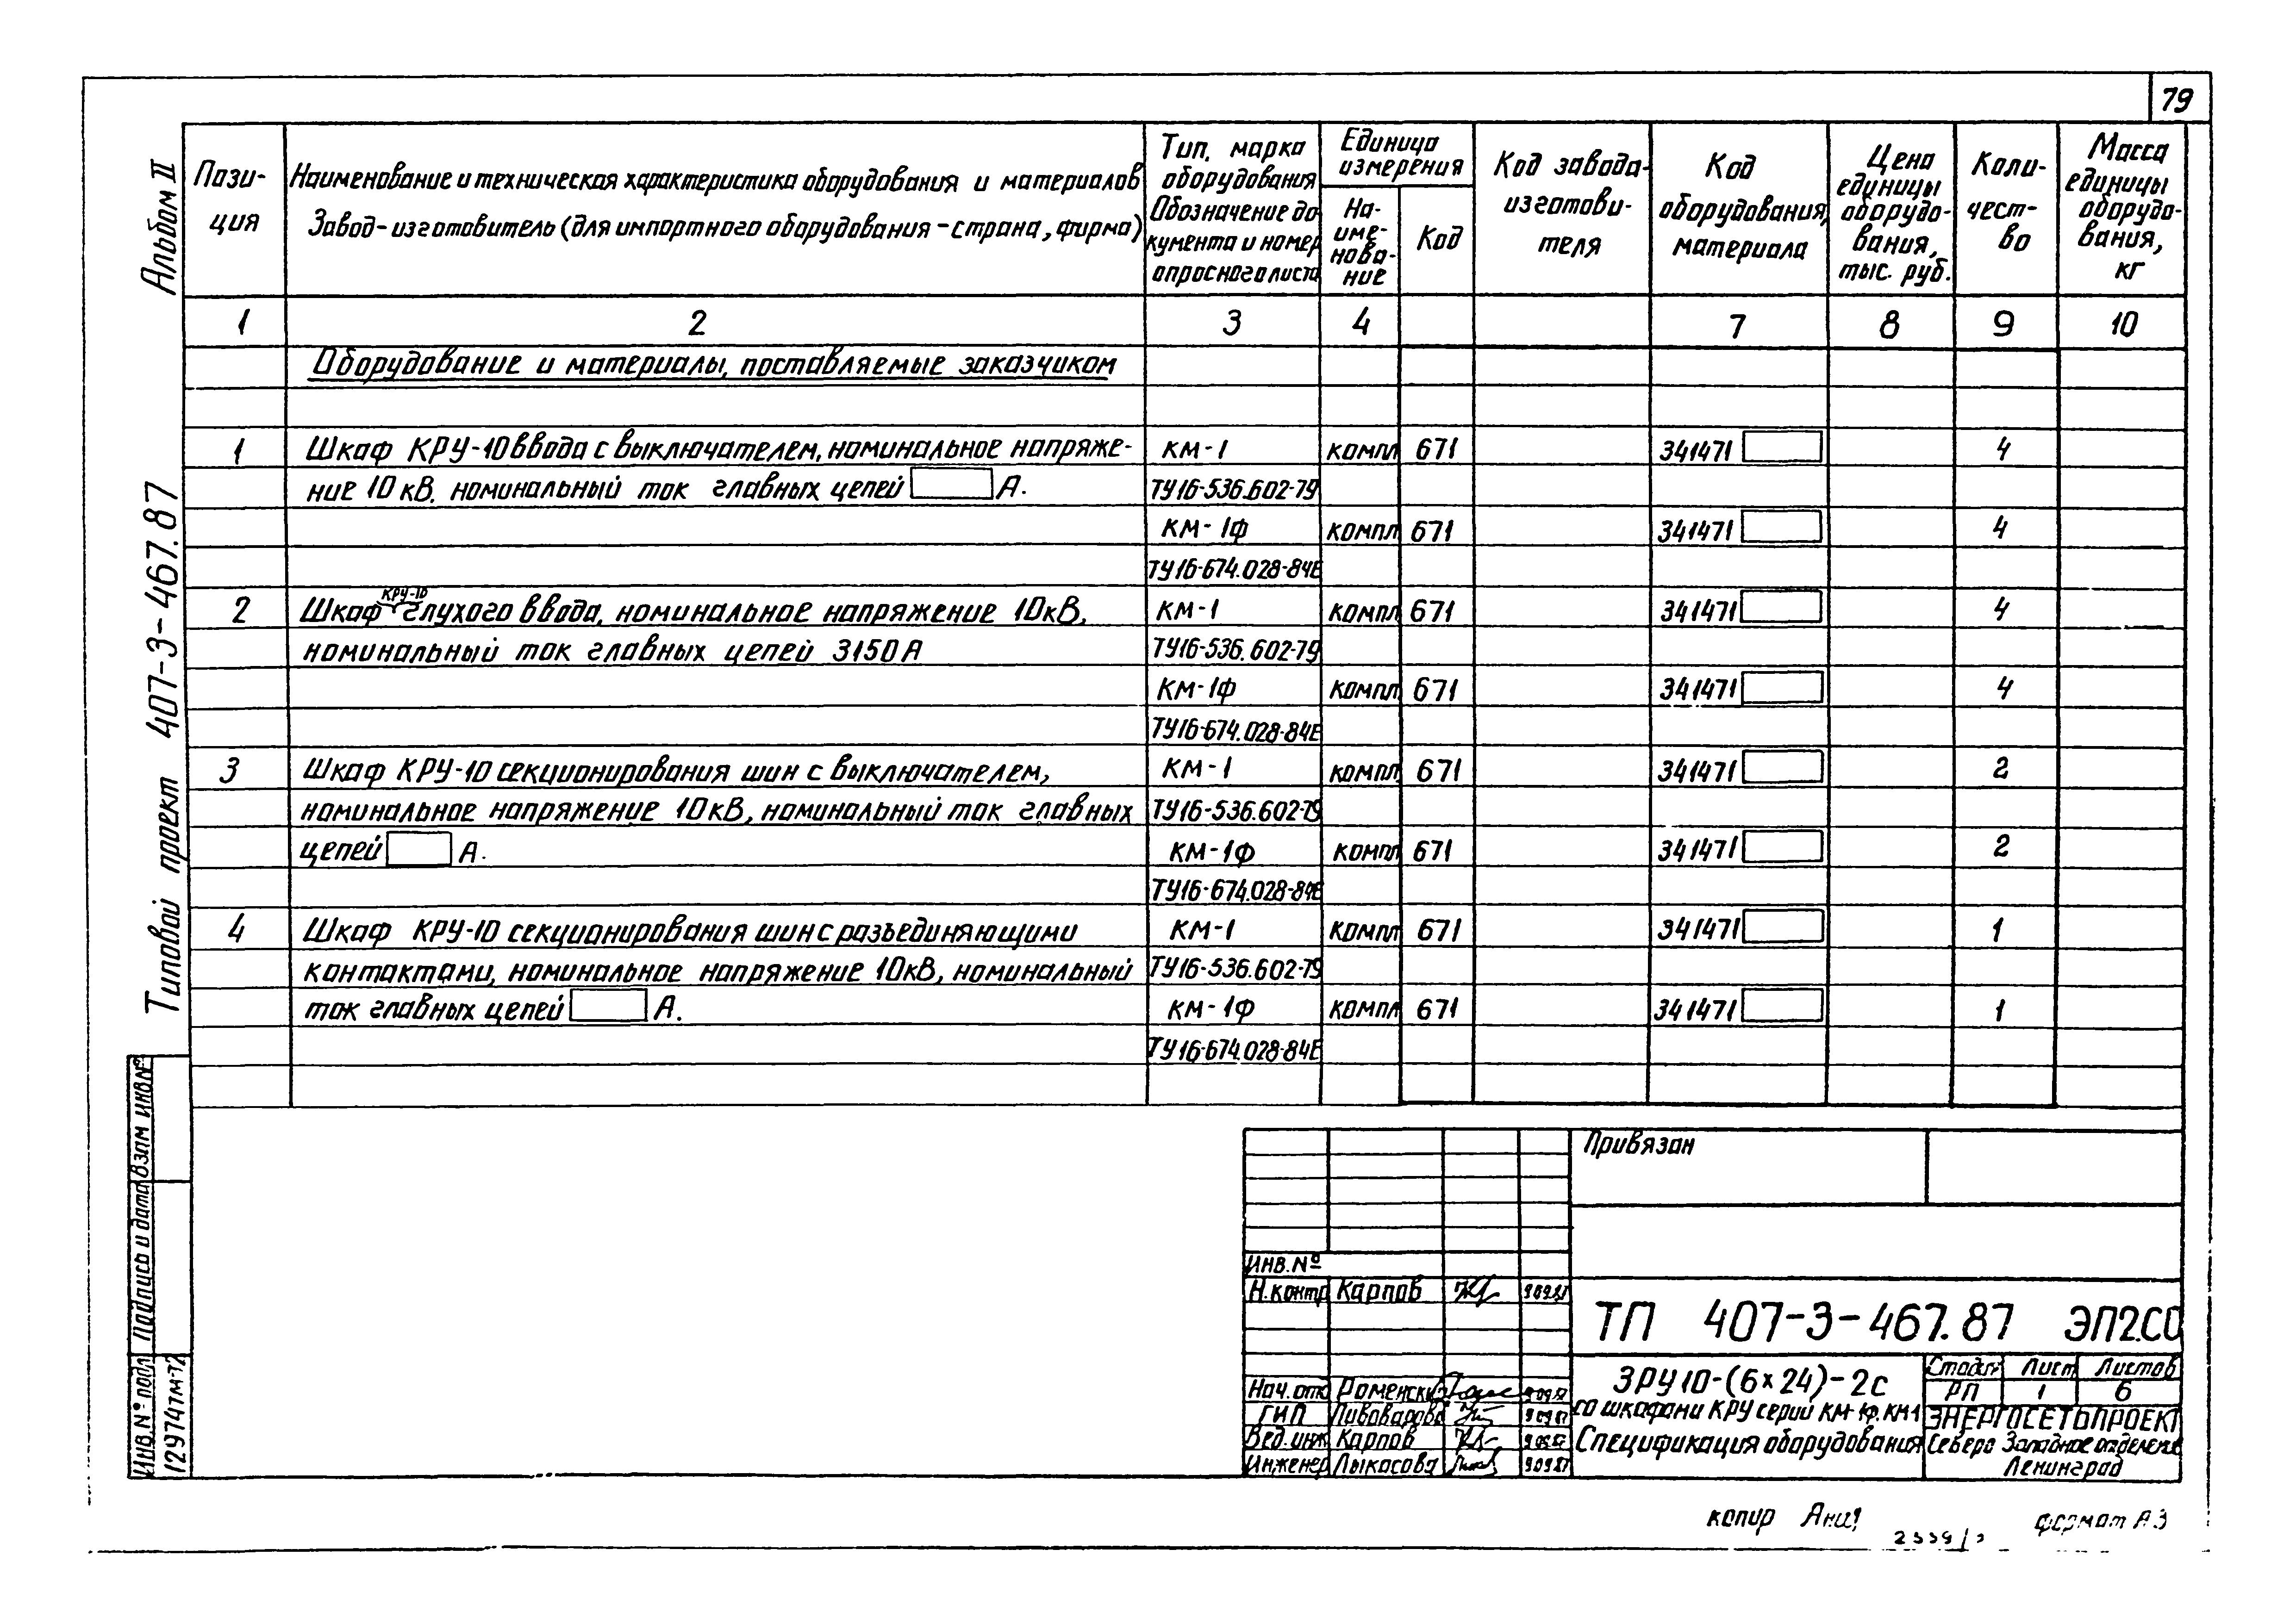 79
Альбом II
Типовой проект 407-3-467.87
Пози-
ция
Наименование и техническая характеристика оборудования и материалов
Завод-изготовитель (для импортного оборудования - страна, фирма)
Тип, марка
оборудования
Обозначение до
кумента и номер
опросного листа
Единица
измерения
На-
име-
нова-
ние
Код
Код завода-
изготови-
теля
Код
оборудования,
материала
Цена
единицы
оборудо-
вания,
тыс. руб.
Коли-
чест-
во
Масса
единицы
оборудо-
вания,
кг
1 2 3 4 7 8 9 10
Оборудование и материалы, поставляемые заказчиком
1 Шкаф КРУ-10 ввода с выключателем, номинальное напряже- КМ-1 компл 671 341471 4
ние 10 кВ. номинальный ток главных цепей А. ТУ16-536.602-79
КМ-1Ф компл 671 341471 4
ТУ16-674.028-84Е
КРУ-10
2 Шкаф глухого ввода, номинальное напряжение 10кВ, КМ-1 компл 671 341471 4
номинальный ток главных цепей 3150А ТУ16-536.602-79
КМ-1Ф компл 671 341471 4
ТУ16-674.028-84Е
3 Шкаф КРУ-10 секционирования шин с выключателем, КМ-1 компл 671 341471 2
номинальное напряжение 10кВ, номинальный ток главных ТУ16-536.602-79
цепей А. КМ-1Ф компл 671 341471 2
ТУ16-674.028-84Е
4 Шкаф КРУ-10 секционирования шин с разъединяющими КМ-1 компл 671 341471 1
контактами, номинальное напряжение 10кВ, номинальный ТУ16-536.602-79
ток главных цепей А. КМ-1Ф компл 671 341471 1
ТУ16-674.028-84Е
Взам инв№
Подпись и дата
Инв.№ подл
12974тм-т2
Привязан
Инв.№
Н.контр Карпов
Нач.отд Роменский
ГИП Пивоварова
Вед.инж Карпов
Инженер Лыкасова
ТП 407-3-467.87 ЭП2.СО
ЗРУ10-(6×24)-2с
со шкафами КРУ серий КМ-1Ф, КМ1
Спецификация оборудования
Стадия Лист Листов
РП 1 6
ЭНЕРГОСЕТЬПРОЕКТ
Северо Западное отделение
Ленинград
копир
формат А3